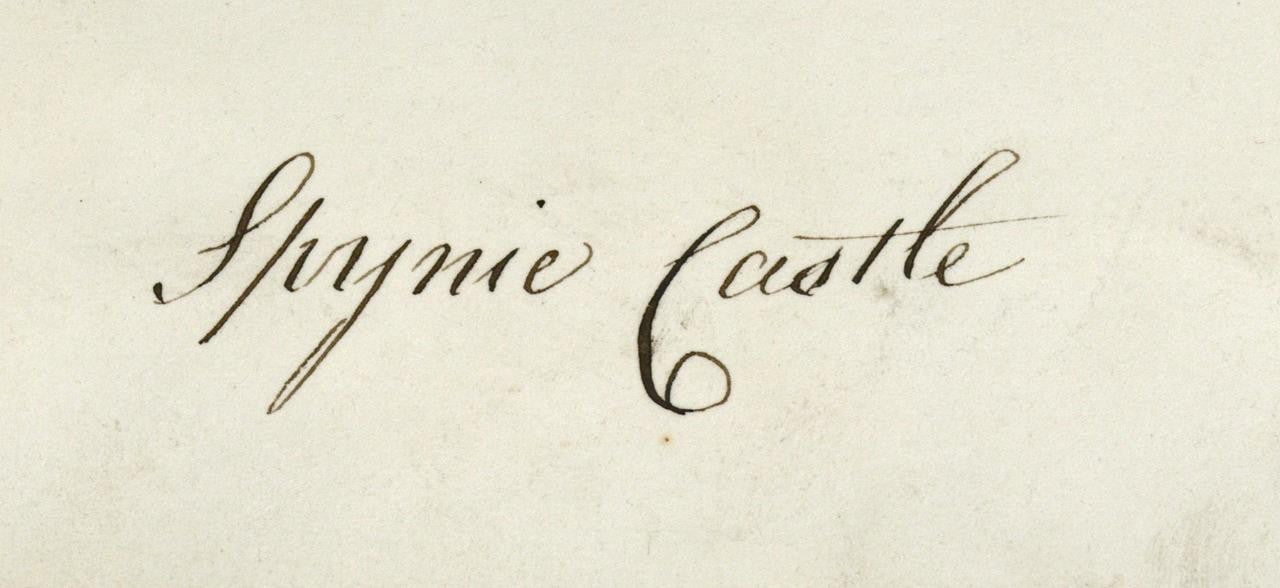 Spynie Castle